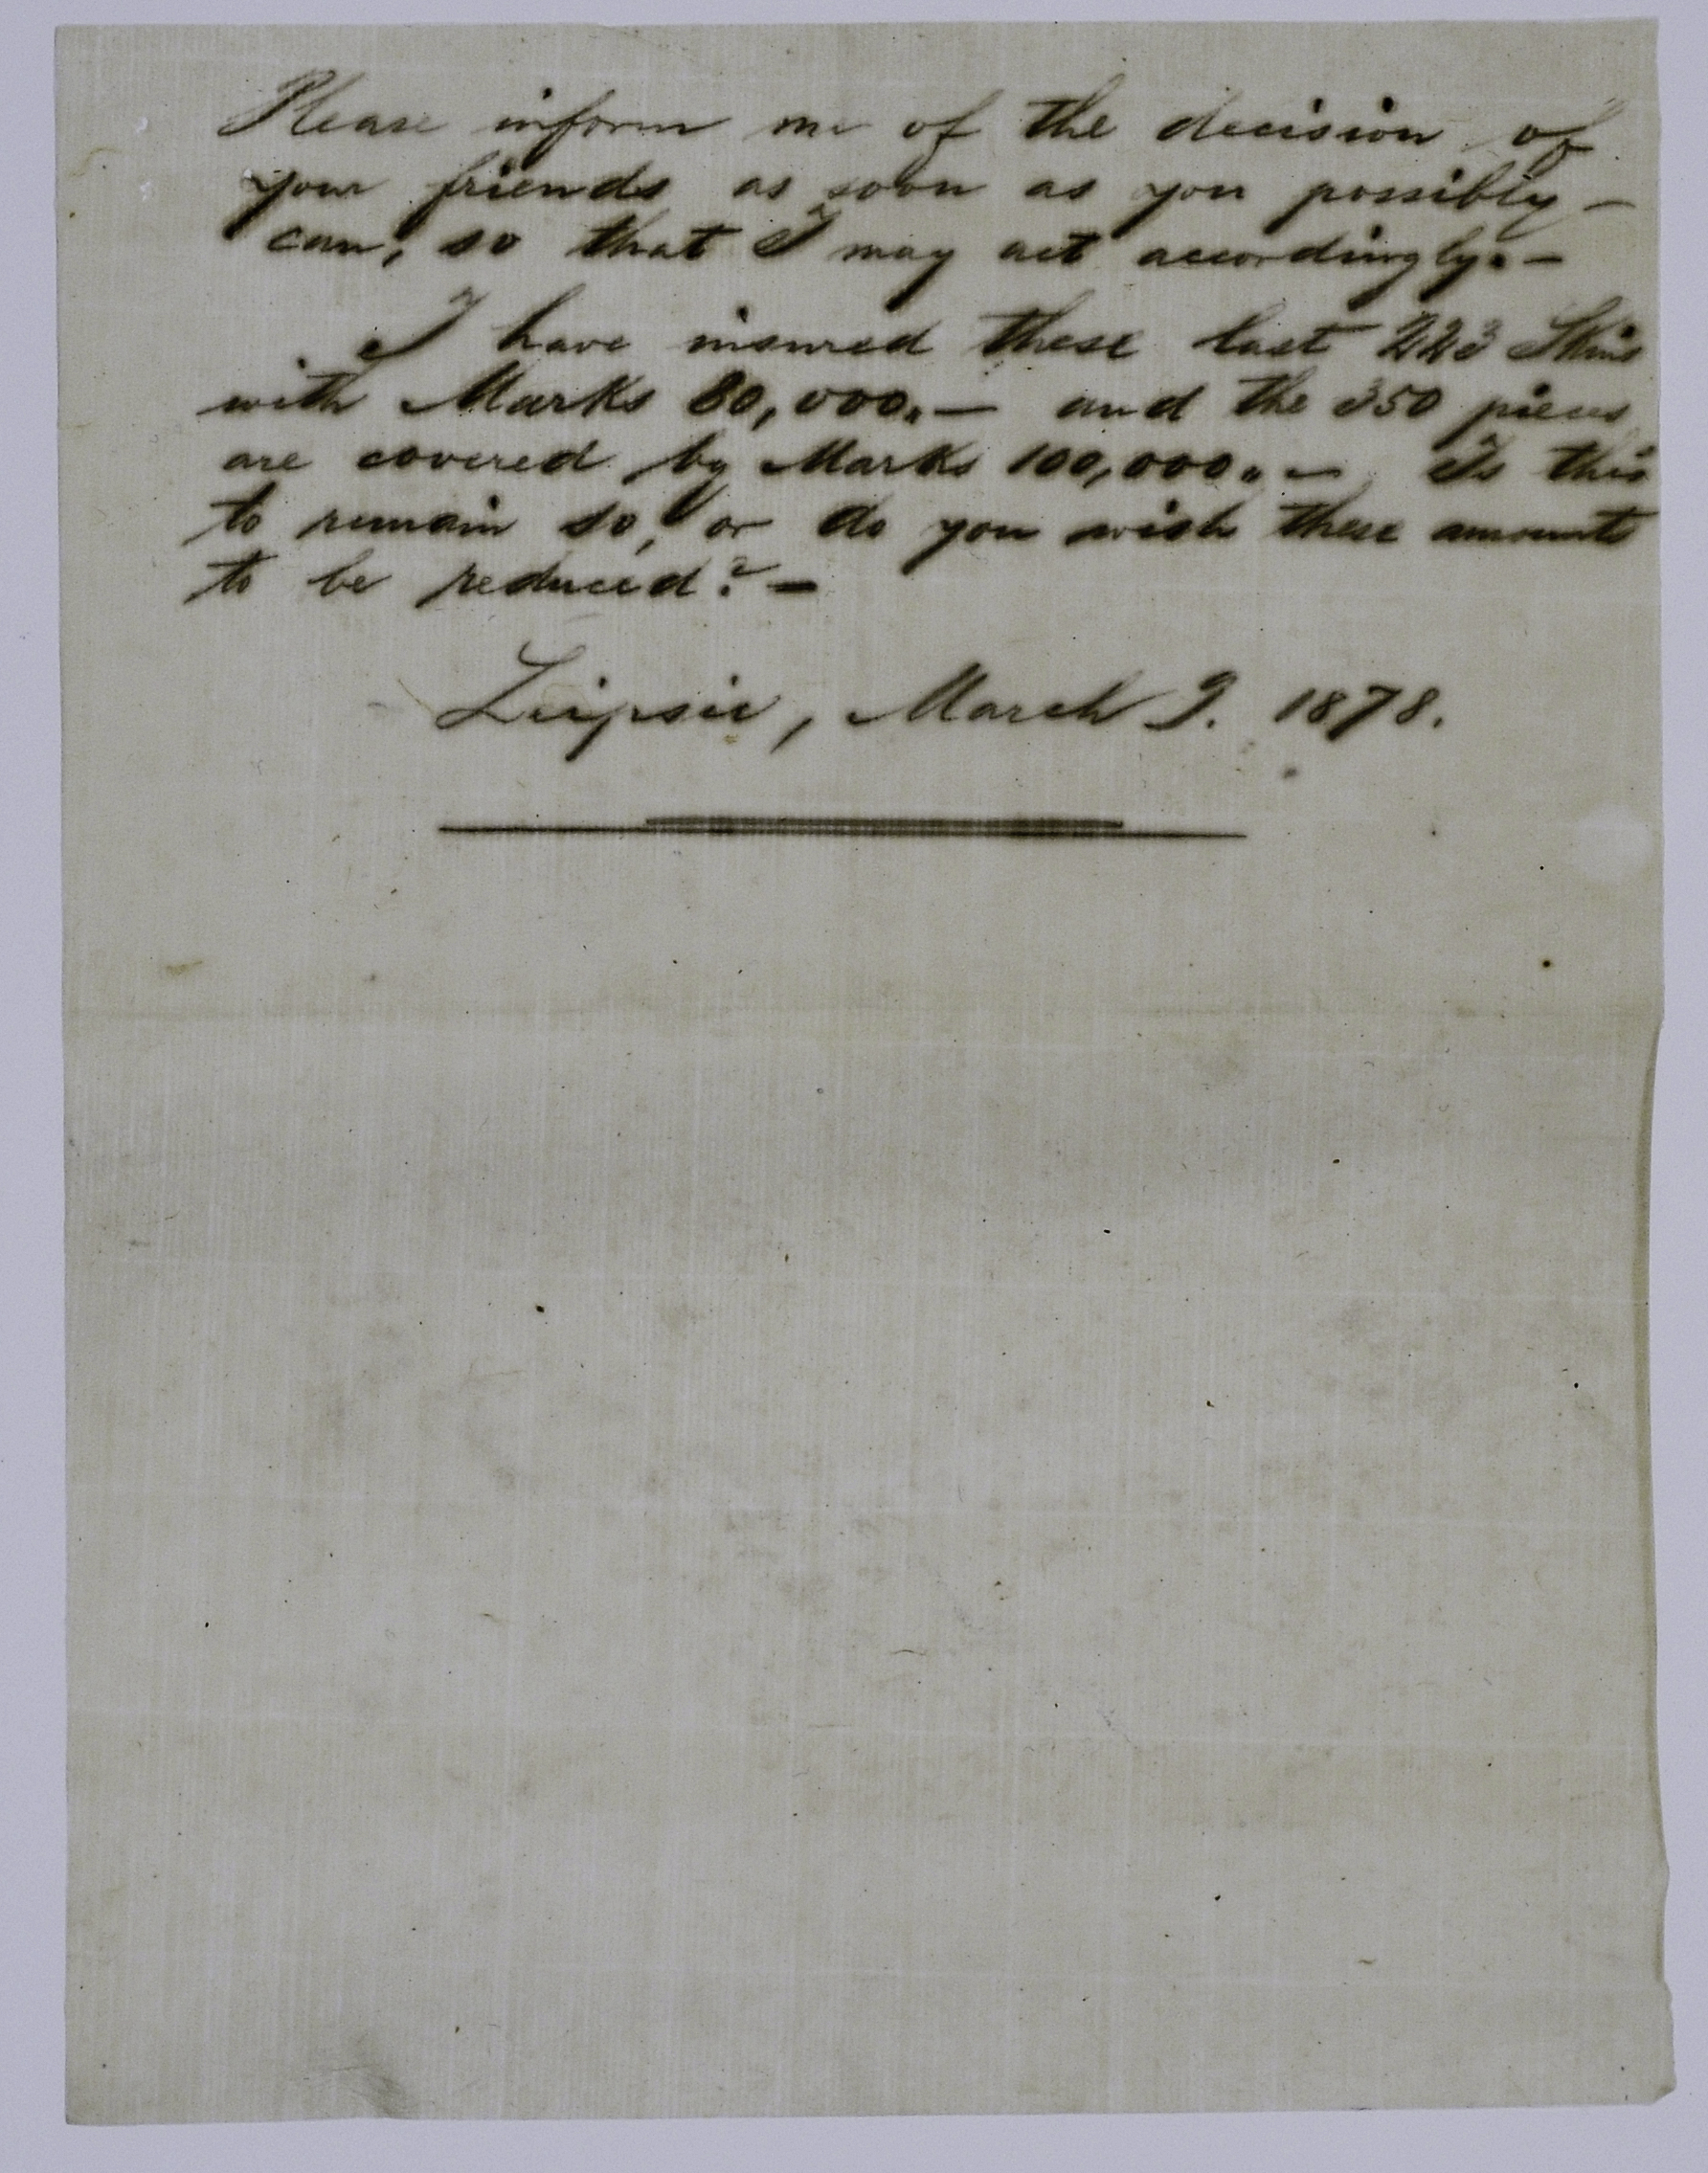 Please inform me of the decision of
your friends as soon as you possibly –
can, so that I may act accordingly. –
I have insured these last 223 Skins
with Marks 80,000.– and the 350 pieces
are covered by Marks 100,000.– Is this
to remain so, or do you wish these amounts
to be reduced? –
Leipsic, March 9. 1878.